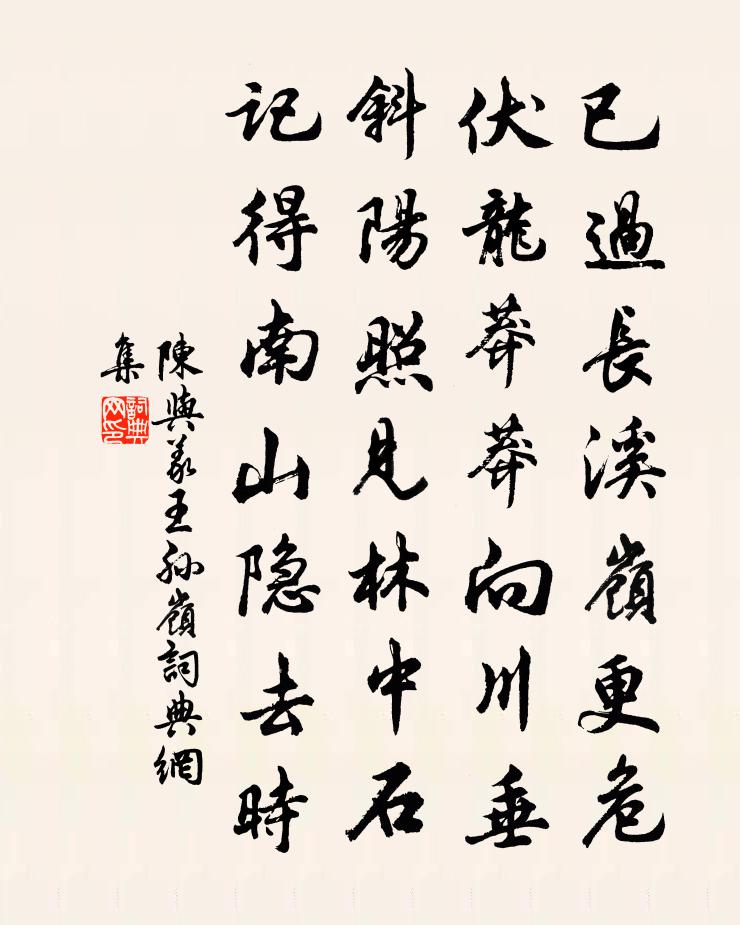 已過長溪嶺更危
伏龍莽莽向川垂
斜陽照見林中石
記得南山隐去時
陳與義王孫嶺詞典網
集
詞典
网印